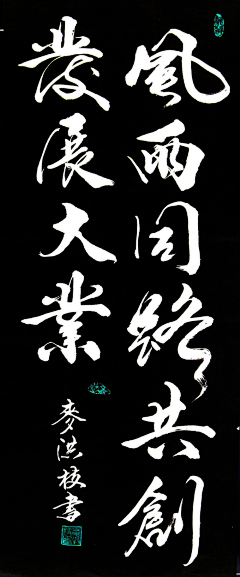 風雨同路共創
發展大業
麥洪枝書